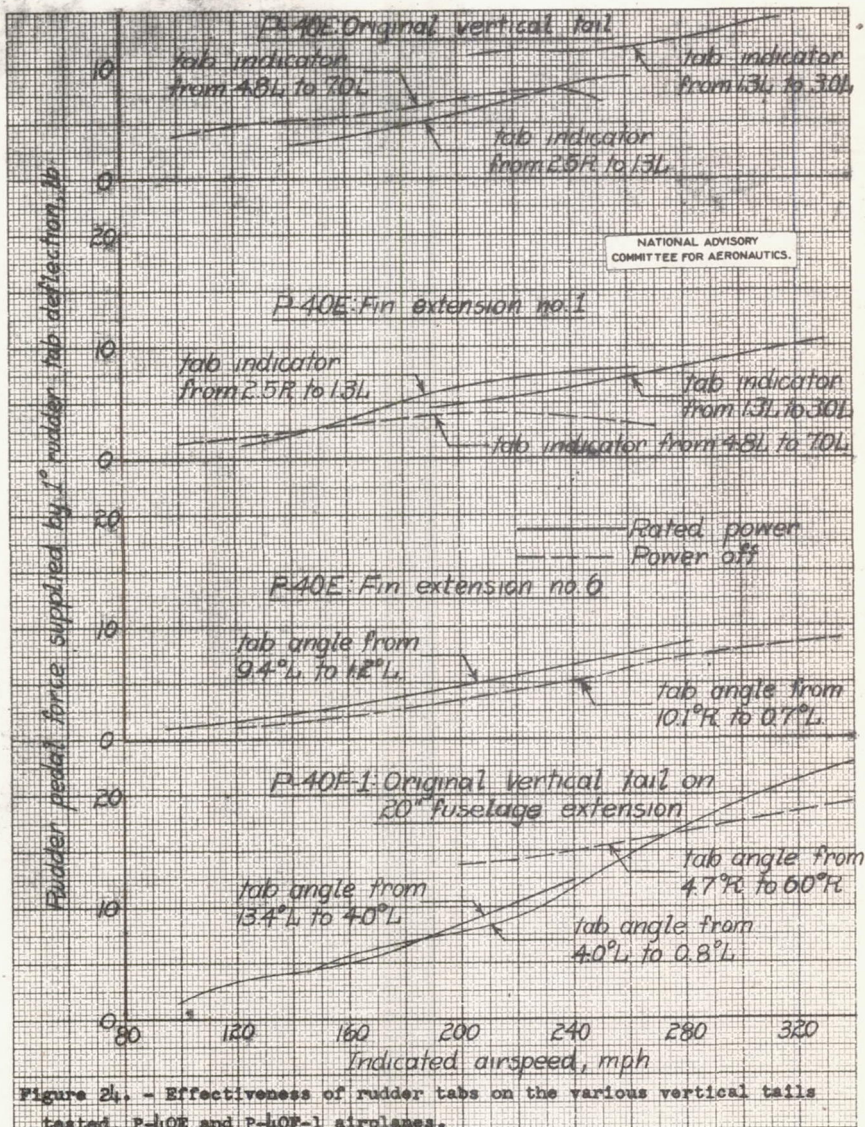 P-40E: Original vertical tail
10
tab indicator
from 4.8L to 7.0L
tab indicator
from 1.3L to 3.0L
tab indicator
from 2.5R to 1.3L
0
20
NATIONAL ADVISORY
COMMITTEE FOR AERONAUTICS.
P-40E: Fin extension no. 1
10
tab indicator
from 2.5R to 1.3L
tab indicator
from 1.3L to 3.0L
tab indicator from 4.8L to 7.0L
0
20
Rated power
Power off
P-40E: Fin extension no. 6
10
tab angle from
9.4°L to 1.2°L
tab angle from
10.1°R to 0.7°L
0
P-40F-1: Original vertical tail on
20" fuselage extension
20
tab angle from
4.7°R to 6.0°R
tab angle from
13.4°L to 4.0°L
10
tab angle from
4.0°L to 0.8°L
0
80 120 160 200 240 280 320
Indicated airspeed, mph
Rudder pedal force supplied by 1° rudder tab deflection, lb
Figure 24. - Effectiveness of rudder tabs on the various vertical tails
tested. P-40E and P-40F-1 airplanes.